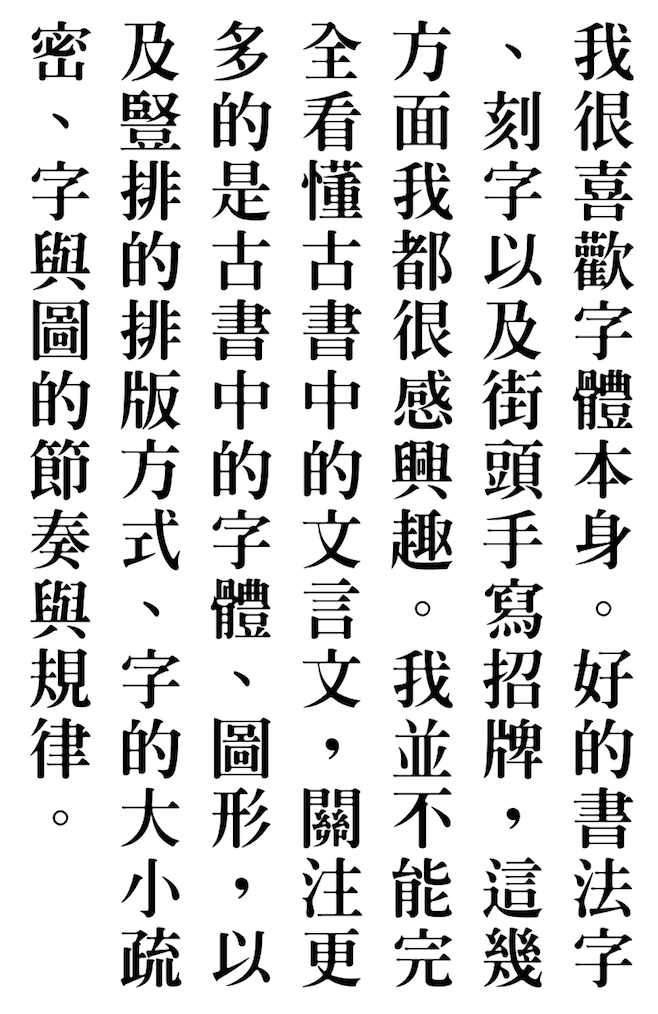 我很喜歡字體本身。好的書法字
、刻字以及街頭手寫招牌，這幾
方面我都很感興趣。我並不能完
全看懂古書中的文言文，關注更
多的是古書中的字體、圖形，以
及豎排的排版方式、字的大小疏
密、字與圖的節奏與規律。